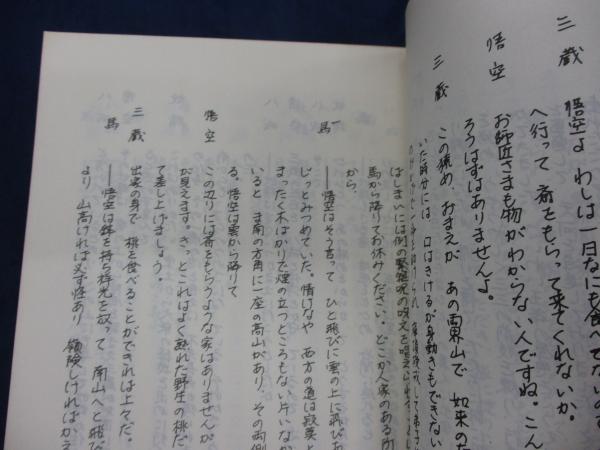 三蔵　悟空よ　わしは一日なにも食べてないの
へ行って　斎をもらって来てくれないか。
悟空　お師匠さまも物がわからない人ですね。こん
ろうはずはありませんよ。
三蔵　この猿め、おまえが　あの両界山で　如来の
いた時分には、口はきけるが身動きもできない
ばしまいには例の緊箍呪の呪文を唱え
馬から降りてお休みください。どこか人家のある所
から。
馬　――悟空はそう言って　ひと飛びに雲の上に飛びあ
じっとみつめていた。情けなや　西方の道は寂莫と
まったく木ばかりで煙の立つところもない片いなか
いると　ま南の方角に一座の高山があり、その両側
る。悟空は雲から降りて
悟空　この辺りには斎をもらうような家はありませんが
が見えます。きっとこれはよく熟れた野生の桃だ
て差し上げましょう。
三蔵　出家の身で　桃を食べることができれば上々だ。
馬　――悟空は鉢を持ち祥光を放って　南山へと飛び
より　山高ければ必ず怪あり　嶺険しければかえ